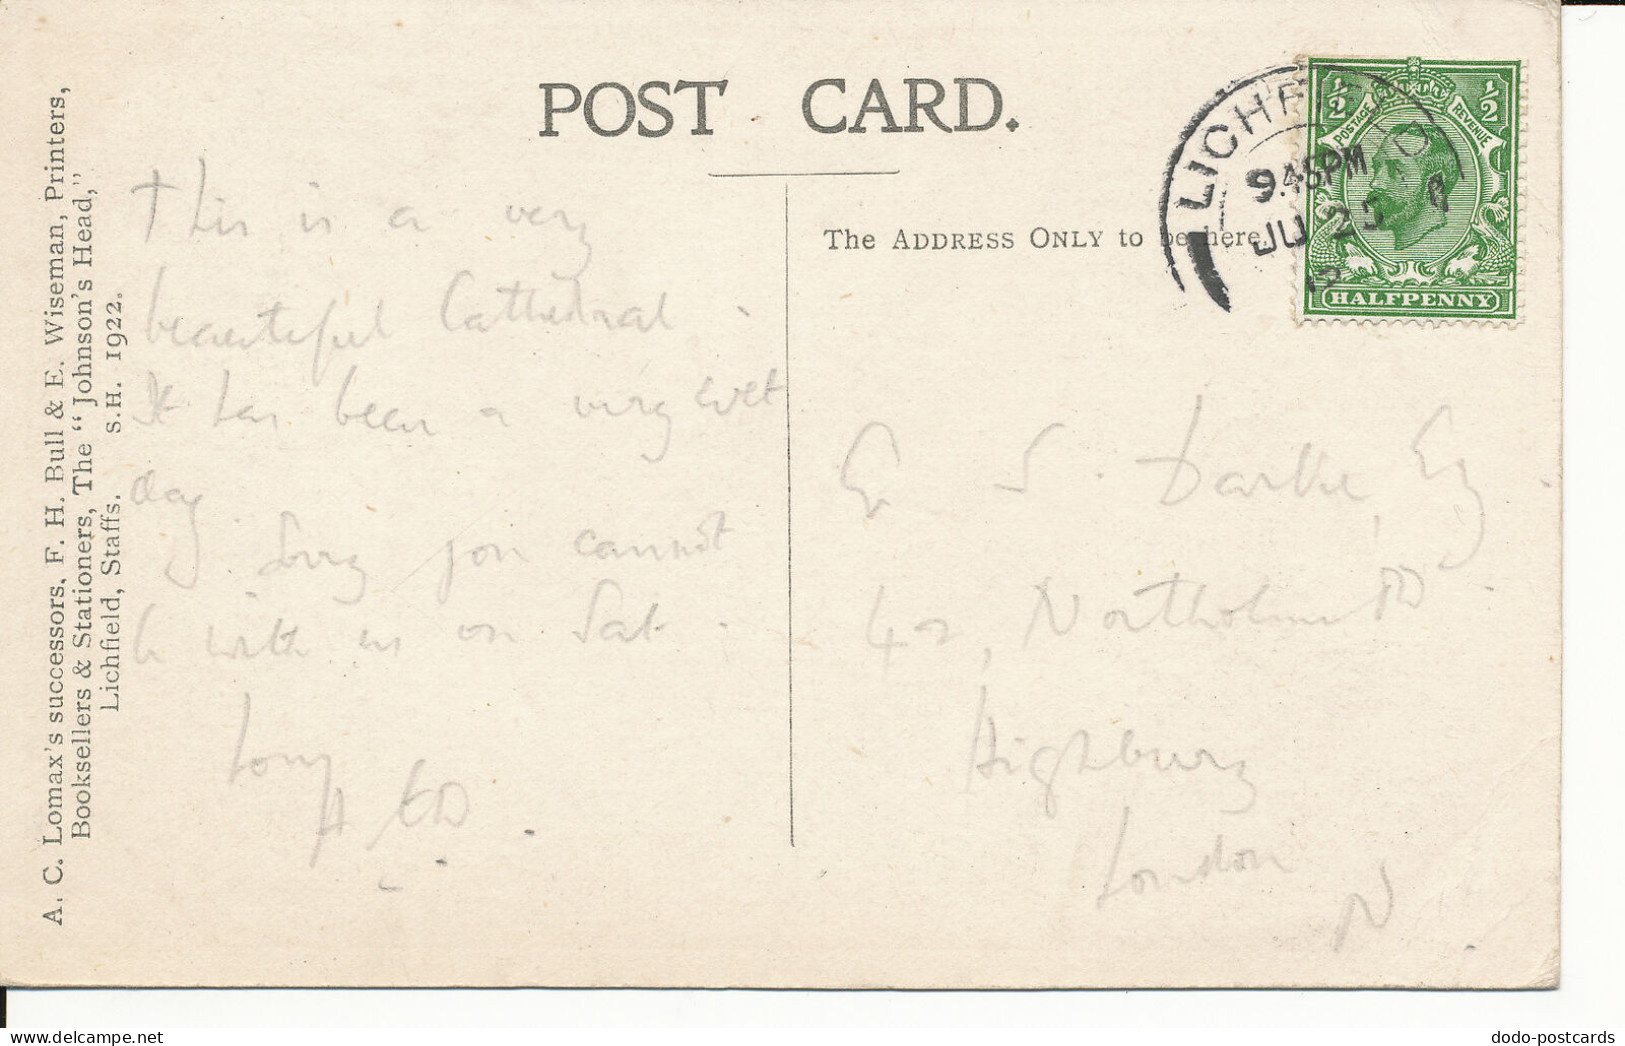 POST CARD.
The ADDRESS ONLY to be here
LICHFIELD
9.45PM
JU 2
POSTAGE REVENUE
½ ½
HALFPENNY
A. C. Lomax's successors, F. H. Bull & E. Wiseman, Printers,
Booksellers & Stationers, The "Johnson's Head,"
Lichfield, Staffs. S.H. 1922.
This is a very
beautiful Cathedral.
It has been a very wet
day. Sorry you cannot
be with us on Sat.
E. S. Darke, Esq.
42, Northolme Rd.
Highbury
London
N.
dodo-postcards